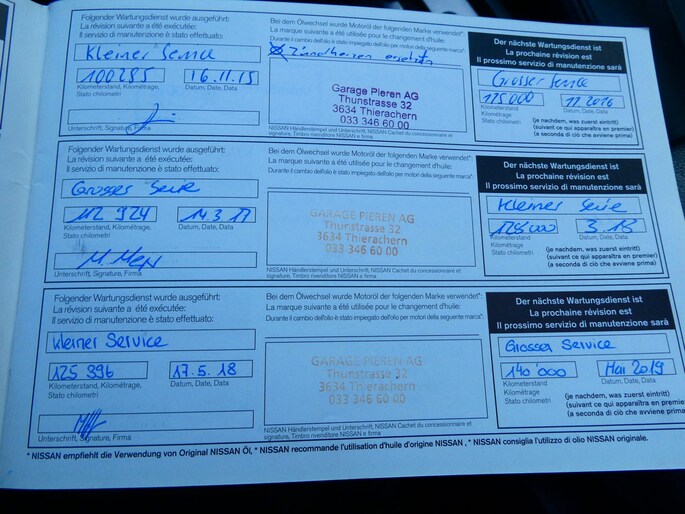 Folgender Wartungsdienst wurde ausgeführt:
La révision suivante a été exécutée:
Il servizio di manutenzione è stato effettuato:
Kleiner Service
100285 16.11.15
Kilometerstand, Kilométrage,
Stato chilometri
Datum, Date, Data
Unterschrift, Signature, Firma
Bei dem Ölwechsel wurde Motoröl der folgenden Marke verwendet*:
La marque suivante a été utilisée pour le changement d'huile:
Durante il cambio dell'olio è stato impiegato dell'olio per motori della seguente marca*:
Zündkerzen ersetzt
Garage Pieren AG
Thunstrasse 32
3634 Thierachern
033 346 60 00
NISSAN Händlerstempel und Unterschrift, NISSAN Cachet du concessionnaire et
signature, Timbro rivenditore NISSAN e firma
Der nächste Wartungsdienst ist
La prochaine révision est
Il prossimo servizio di manutenzione sarà
Grosser Service
115'000 11.2016
Kilometerstand
Kilométrage
Stato chilometri
Datum, Date, Data
(je nachdem, was zuerst eintritt)
(suivant ce qui apparaîtra en premier)
(a seconda di ciò che avviene prima)
Folgender Wartungsdienst wurde ausgeführt:
La révision suivante a été exécutée:
Il servizio di manutenzione è stato effettuato:
Grosser Service
112 924 14.3.17
Kilometerstand, Kilométrage,
Stato chilometri
Datum, Date, Data
Unterschrift, Signature, Firma
Bei dem Ölwechsel wurde Motoröl der folgenden Marke verwendet*:
La marque suivante a été utilisée pour le changement d'huile:
Durante il cambio dell'olio è stato impiegato dell'olio per motori della seguente marca*:
GARAGE PIEREN AG
Thunstrasse 32
3634 Thierachern
033 346 60 00
NISSAN Händlerstempel und Unterschrift, NISSAN Cachet du concessionnaire et
signature, Timbro rivenditore NISSAN e firma
Der nächste Wartungsdienst ist
La prochaine révision est
Il prossimo servizio di manutenzione sarà
Kleiner
3.18
Kilometerstand
Kilométrage
Stato chilometri
Datum, Date, Data
(je nachdem, was zuerst eintritt)
(suivant ce qui apparaîtra en premier)
(a seconda di ciò che avviene prima)
Folgender Wartungsdienst wurde ausgeführt:
La révision suivante a été exécutée:
Il servizio di manutenzione è stato effettuato:
Kleiner Service
125 396 17.5.18
Kilometerstand, Kilométrage,
Stato chilometri
Datum, Date, Data
Unterschrift, Signature, Firma
Bei dem Ölwechsel wurde Motoröl der folgenden Marke verwendet*:
La marque suivante a été utilisée pour le changement d'huile:
Durante il cambio dell'olio è stato impiegato dell'olio per motori della seguente marca*:
GARAGE PIEREN AG
Thunstrasse 32
3634 Thierachern
033 346 60 00
NISSAN Händlerstempel und Unterschrift, NISSAN Cachet du concessionnaire et
signature, Timbro rivenditore NISSAN e firma
Der nächste Wartungsdienst ist
La prochaine révision est
Il prossimo servizio di manutenzione sarà
Grosser Service
140'000 Mai 2019
Kilometerstand
Kilométrage
Stato chilometri
Datum, Date, Data
(je nachdem, was zuerst eintritt)
(suivant ce qui apparaîtra en premier)
(a seconda di ciò che avviene prima)
* NISSAN empfiehlt die Verwendung von Original NISSAN Öl, * NISSAN recommande l'utilisation d'huile d'origine NISSAN , * NISSAN consiglia l'utilizzo di olio NISSAN originale.